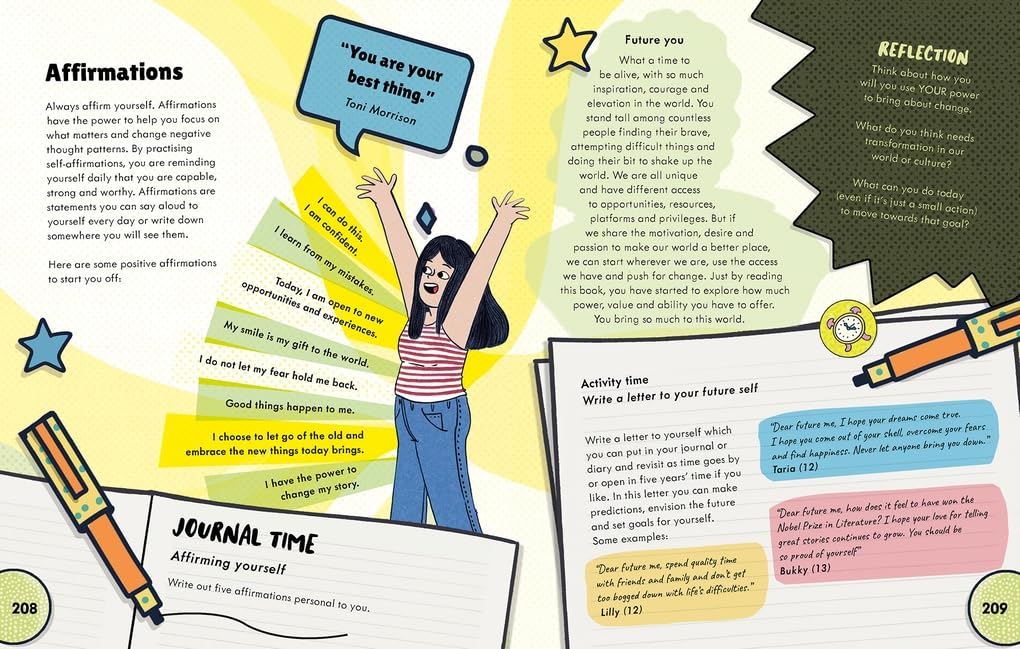 Affirmations
Always affirm yourself. Affirmations
have the power to help you focus on
what matters and change negative
thought patterns. By practising
self-affirmations, you are reminding
yourself daily that you are capable,
strong and worthy. Affirmations are
statements you can say aloud to
yourself every day or write down
somewhere you will see them.
Here are some positive affirmations
to start you off:
"You are your
best thing."
Toni Morrison
I can do this.
I am confident.
I learn from my mistakes.
Today, I am open to new
opportunities and experiences.
My smile is my gift to the world.
I do not let my fear hold me back.
Good things happen to me.
I choose to let go of the old and
embrace the new things today brings.
I have the power to
change my story.
JOURNAL TIME
Affirming yourself
Write out five affirmations personal to you.
208
Future you
What a time to
be alive, with so much
inspiration, courage and
elevation in the world. You
stand tall among countless
people finding their brave,
attempting difficult things and
doing their bit to shake up the
world. We are all unique
and have different access
to opportunities, resources,
platforms and privileges. But if
we share the motivation, desire and
passion to make our world a better place,
we can start wherever we are, use the access
we have and push for change. Just by reading
this book, you have started to explore how much
power, value and ability you have to offer.
You bring so much to this world.
REFLECTION
Think about how you
will you use YOUR power
to bring about change.
What do you think needs
transformation in our
world or culture?
What can you do today
(even if it's just a small action)
to move towards that goal?
Activity time
Write a letter to your future self
Write a letter to yourself which
you can put in your journal or
diary and revisit as time goes by
or open in five years' time if you
like. In this letter you can make
predictions, envision the future
and set goals for yourself.
Some examples:
"Dear future me, spend quality time
with friends and family and don't get
too bogged down with life's difficulties."
Lilly (12)
"Dear future me, I hope your dreams come true.
I hope you come out of your shell, overcome your fears
and find happiness. Never let anyone bring you down."
Taria (12)
"Dear future me, how does it feel to have won the
Nobel Prize in Literature? I hope your love for telling
great stories continues to grow. You should be
so proud of yourself"
Bukky (13)
209